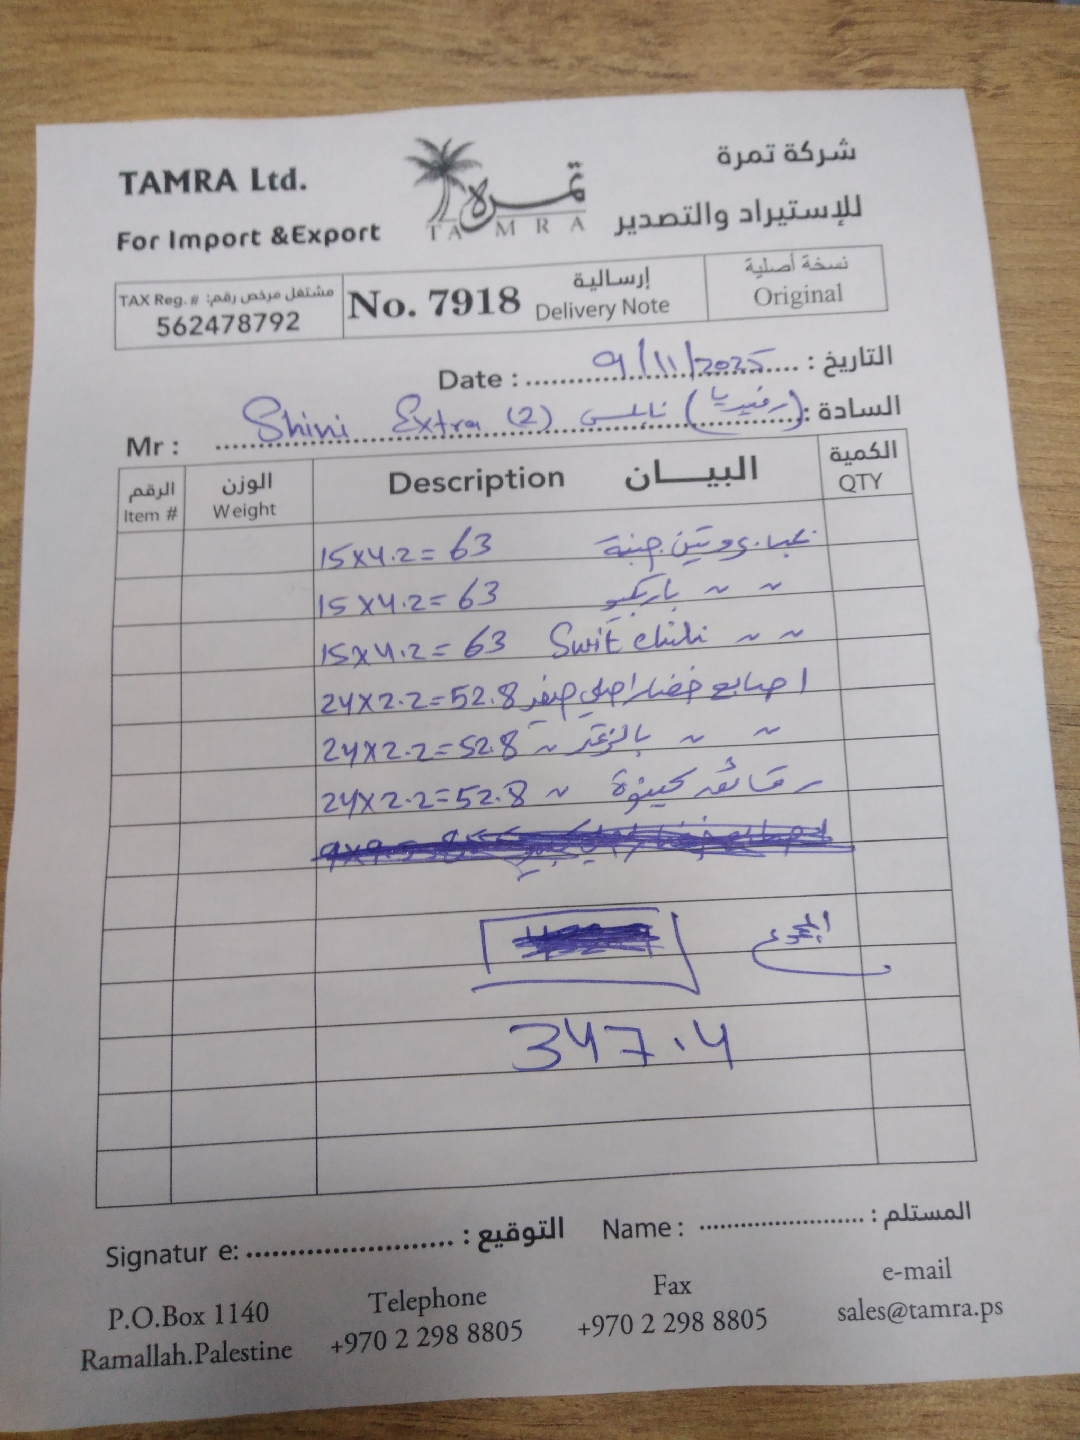 TAMRA Ltd.
شركة تمرة
For Import &Export
للإستيراد والتصدير
تمرة
TAMRA
TAX Reg. # مشتغل مرخص رقم:
562478792
No. 7918
إرسالية
Delivery Note
نسخة أصلية
Original
Date : 9/11/2025 التاريخ :
Mr : Shini Extra (2) نابلس (رفيديا) السادة :
الرقم
Item #
الوزن
Weight
Description البيـــــان
الكمية
QTY
15x4.2=63 بروتين جبنة
15x4.2=63 باربكيو ~ ~
15x4.2=63 Swit chili ~ ~
24x2.2=52.8 اصابع خضار اصلي صغير
24x2.2=52.8 ~ بالزعتر ~ ~
24x2.2=52.8 ~ رقائق كينوة
المجموع
347.4
Signatur e: التوقيع :
Name : المستلم :
P.O.Box 1140
Ramallah.Palestine
Telephone
+970 2 298 8805
Fax
+970 2 298 8805
e-mail
sales@tamra.ps